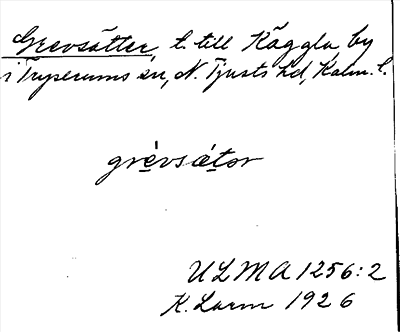 Grevsätter, t. till Käggla, by
i Tryserums sn, N. Tjusts hd, Kalm. l.
grevsätor
ULMA 1256:2
K. Larm 1926